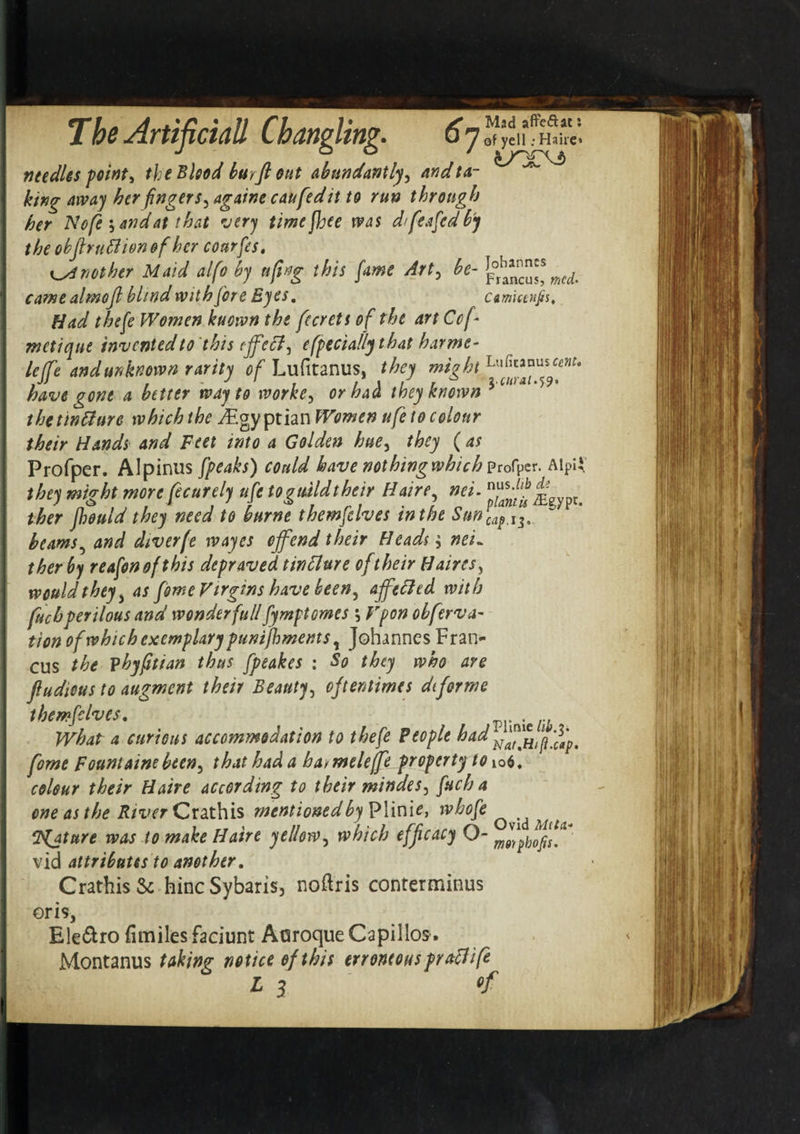 The Artificiall Changling. 67 Mad affectat:
of yell: Haire.
needles point, the Blood burſt out abundantly, and ta-
king away her fingers, againe cauſed it to run through
her Noſe; and at that very time ſhee was diſeaſed by
the obſtruction of her courſes.
Another Maid alſo by uſing this ſame Art, be- Johannes
Francus, med.
came almoſt blind with ſore Eyes. Camicenſis.
Had theſe Women known the ſecrets of the art Coſ-
metique invented to this effect, eſpecially that harme-
leſſe and unknown rarity of Luſitanus, they might Luſitanus cent.
3. curat. 59.
have gone a better way to worke, or had they known
the tincture which the Ægyptian Women uſe to colour
their Hands and Feet into a Golden hue, they (as
Proſper. Alpinus ſpeaks) could have nothing which Proſper. Alpi-
they might more ſecurely uſe to guild their Haire, nei- nus. lib de
plantis Ægypt.
ther ſhould they need to burne themſelves in the Sun cap. 13.
beams, and diverſe wayes offend their Heads; nei-
ther by reaſon of this depraved tincture of their Haires,
would they, as ſome Virgins have been, affected with
ſuch perilous and wonderfull ſymptomes; Vpon obſerva-
tion of which exemplary puniſhments, Johannes Fran-
cus the Phyſitian thus ſpeakes: So they who are
ſtudious to augment their Beauty, oftentimes deforme
themſelves.
What a curious accommodation to theſe People had Plinie lib. 3.
Nat. Hiſt. cap.
ſome Fountaine been, that had a harmeleſſe property to 106.
colour their Haire according to their mindes, ſuch a
one as the River Crathis mentioned by Plinie, whoſe
Nature was to make Haire yellow, which efficacy O- Ovid Meta-
morphoſis.
vid attributes to another.
Crathis & hinc Sybaris, noſtris conterminus
oris,
Electro ſimiles faciunt Auroque Capillos.
Montanus taking notice of this erroneous practiſe
L 3 of